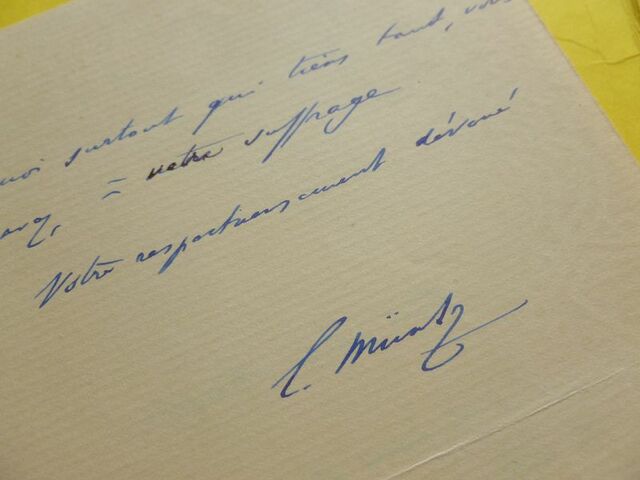 moi surtout qui tiens tant, vous
à votre suffrage
Votre respectueusement dévoué
E. Müntz